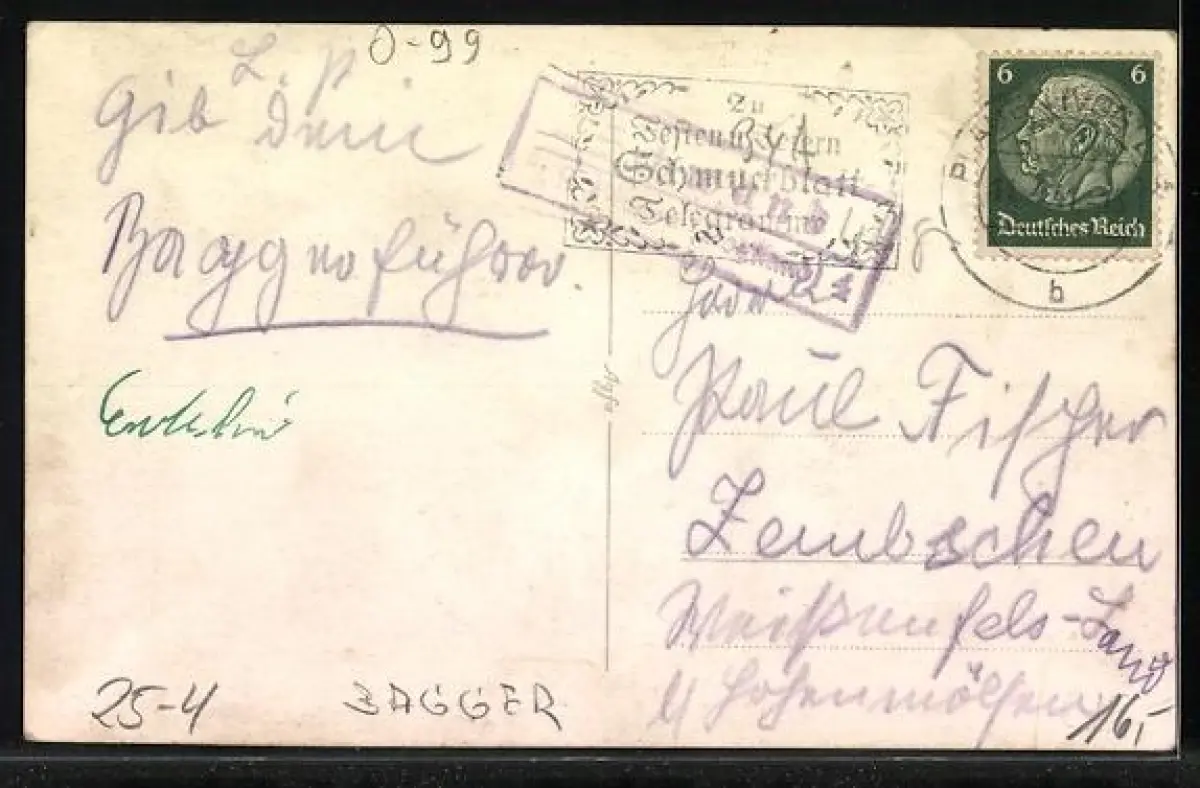 0-99
L. P.
Gib dem
Baggerführer.
Zu
Festen u. Feiern
Schmuckblatt
Telegramme
6 6
Deutsches Reich
b
Herrn
Paul Fischer
Zembschen
Weißenfels-Land
Hohenmölsen
25-4
BAGGER
16,-